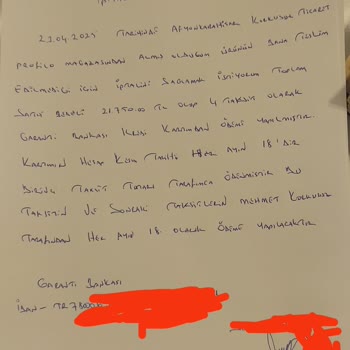 22.04.2024 TARİHİNDE AFYONKARAHİSAR KORKUSUZ TİCARET
PROFİLO MAĞAZASINDAN ALMIŞ OLDUĞUM ÜRÜNÜN BANA TESLİM
EDİLMEDİĞİ İÇİN İPTALİNİ SAĞLAMAK İSTİYORUM TOPLAM
SATIŞ BEDELİ 21.750.00 TL OLUP 4 TAKSİT OLARAK
GARANTİ BANKASI KREDİ KARTIMDAN ÖDEME YAPILMIŞTIR.
KARTIMIN HESAP KESİM TARİHİ HER AYIN 18'DİR
BİRİNCİ TAKSİT TUTARI TARAFIMCA ÖDENMİŞTİR BU
TAKSİTİN VE SONRAKİ TAKSİTLERİN MEHMET KORKUSUZ
TARAFINDAN HER AYIN 18 OLARAK ÖDEME YAPILACAKTIR
GARANTİ BANKASI
İBAN- TR78